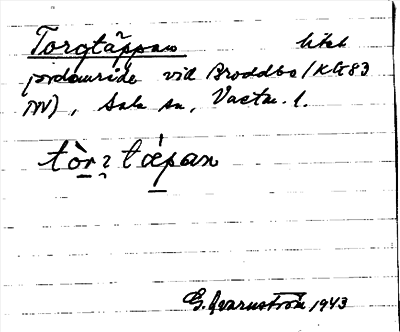 Torgtäppan litet
jordområde vid Broddbo (KG83
NV), Sala sn, Vastm. l.
tòrꝛtápan
G. Hvarnström 1943